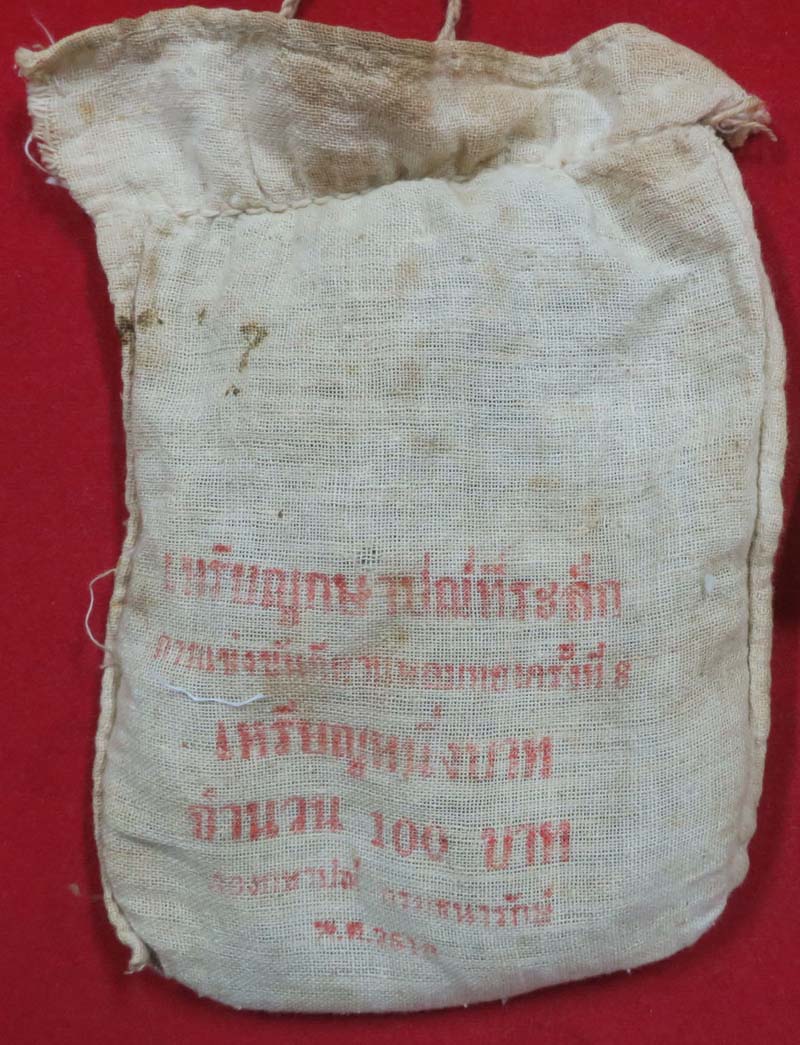 เหรียญกษาปณ์ที่ระลึก
การแข่งขันกีฬาแหลมทองครั้งที่ 8
เหรียญหนึ่งบาท
จำนวน 100 บาท
กองกษาปณ์ กรมธนารักษ์
พ.ศ.